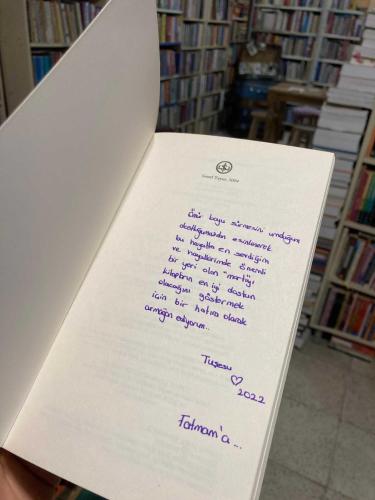 Ömür boyu sürmesini umduğum
dostluğumuzdan esinlenerek
bu hayatta en sevdiğim
ve hayallerimde önemli
bir yeri olan "martıyı
kitapların en iyi dostun
olacağını göstermek
için bir hatıra olarak
armağan ediyorum..
Tuğesu
♡ 2022
Fatmam'a ...